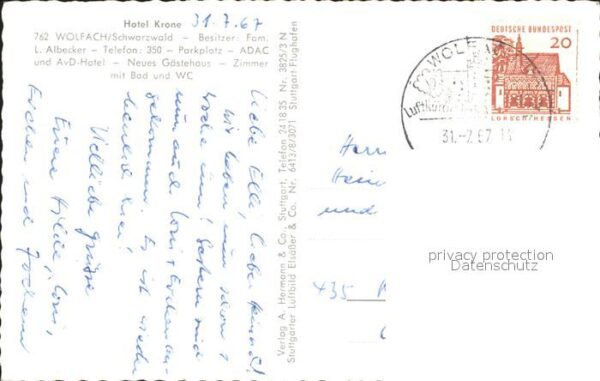 Hotel Krone
31.7.67
762 WOLFACH/Schwarzwald – Besitzer: Fam.
L. Albecker – Telefon: 350 – Parkplatz – ADAC
und AvD-Hotel – Neues Gästehaus – Zimmer
mit Bad und WC
Liebe Elli, liebe
wir haben nun schon
Woche um! Gestern sind
nun auch
gekommen. Es ist wieder
herrlich hier!
Viel liebe Grüsse
Eure Hilde,
und Jochen
Verlag A. Hermann & Co., Stuttgart, Telefon 2418 35 Nr. 3825/3 N
Stuttgarter Luftbild Elsäßer & Co. Nr. 6413/8/307, Stuttgart-Flughafen
DEUTSCHE BUNDESPOST
20
LORSCH/HESSEN
WOLFACH
31.-7.67
Herrn
Hein
und
435
privacy protection
Datenschutz